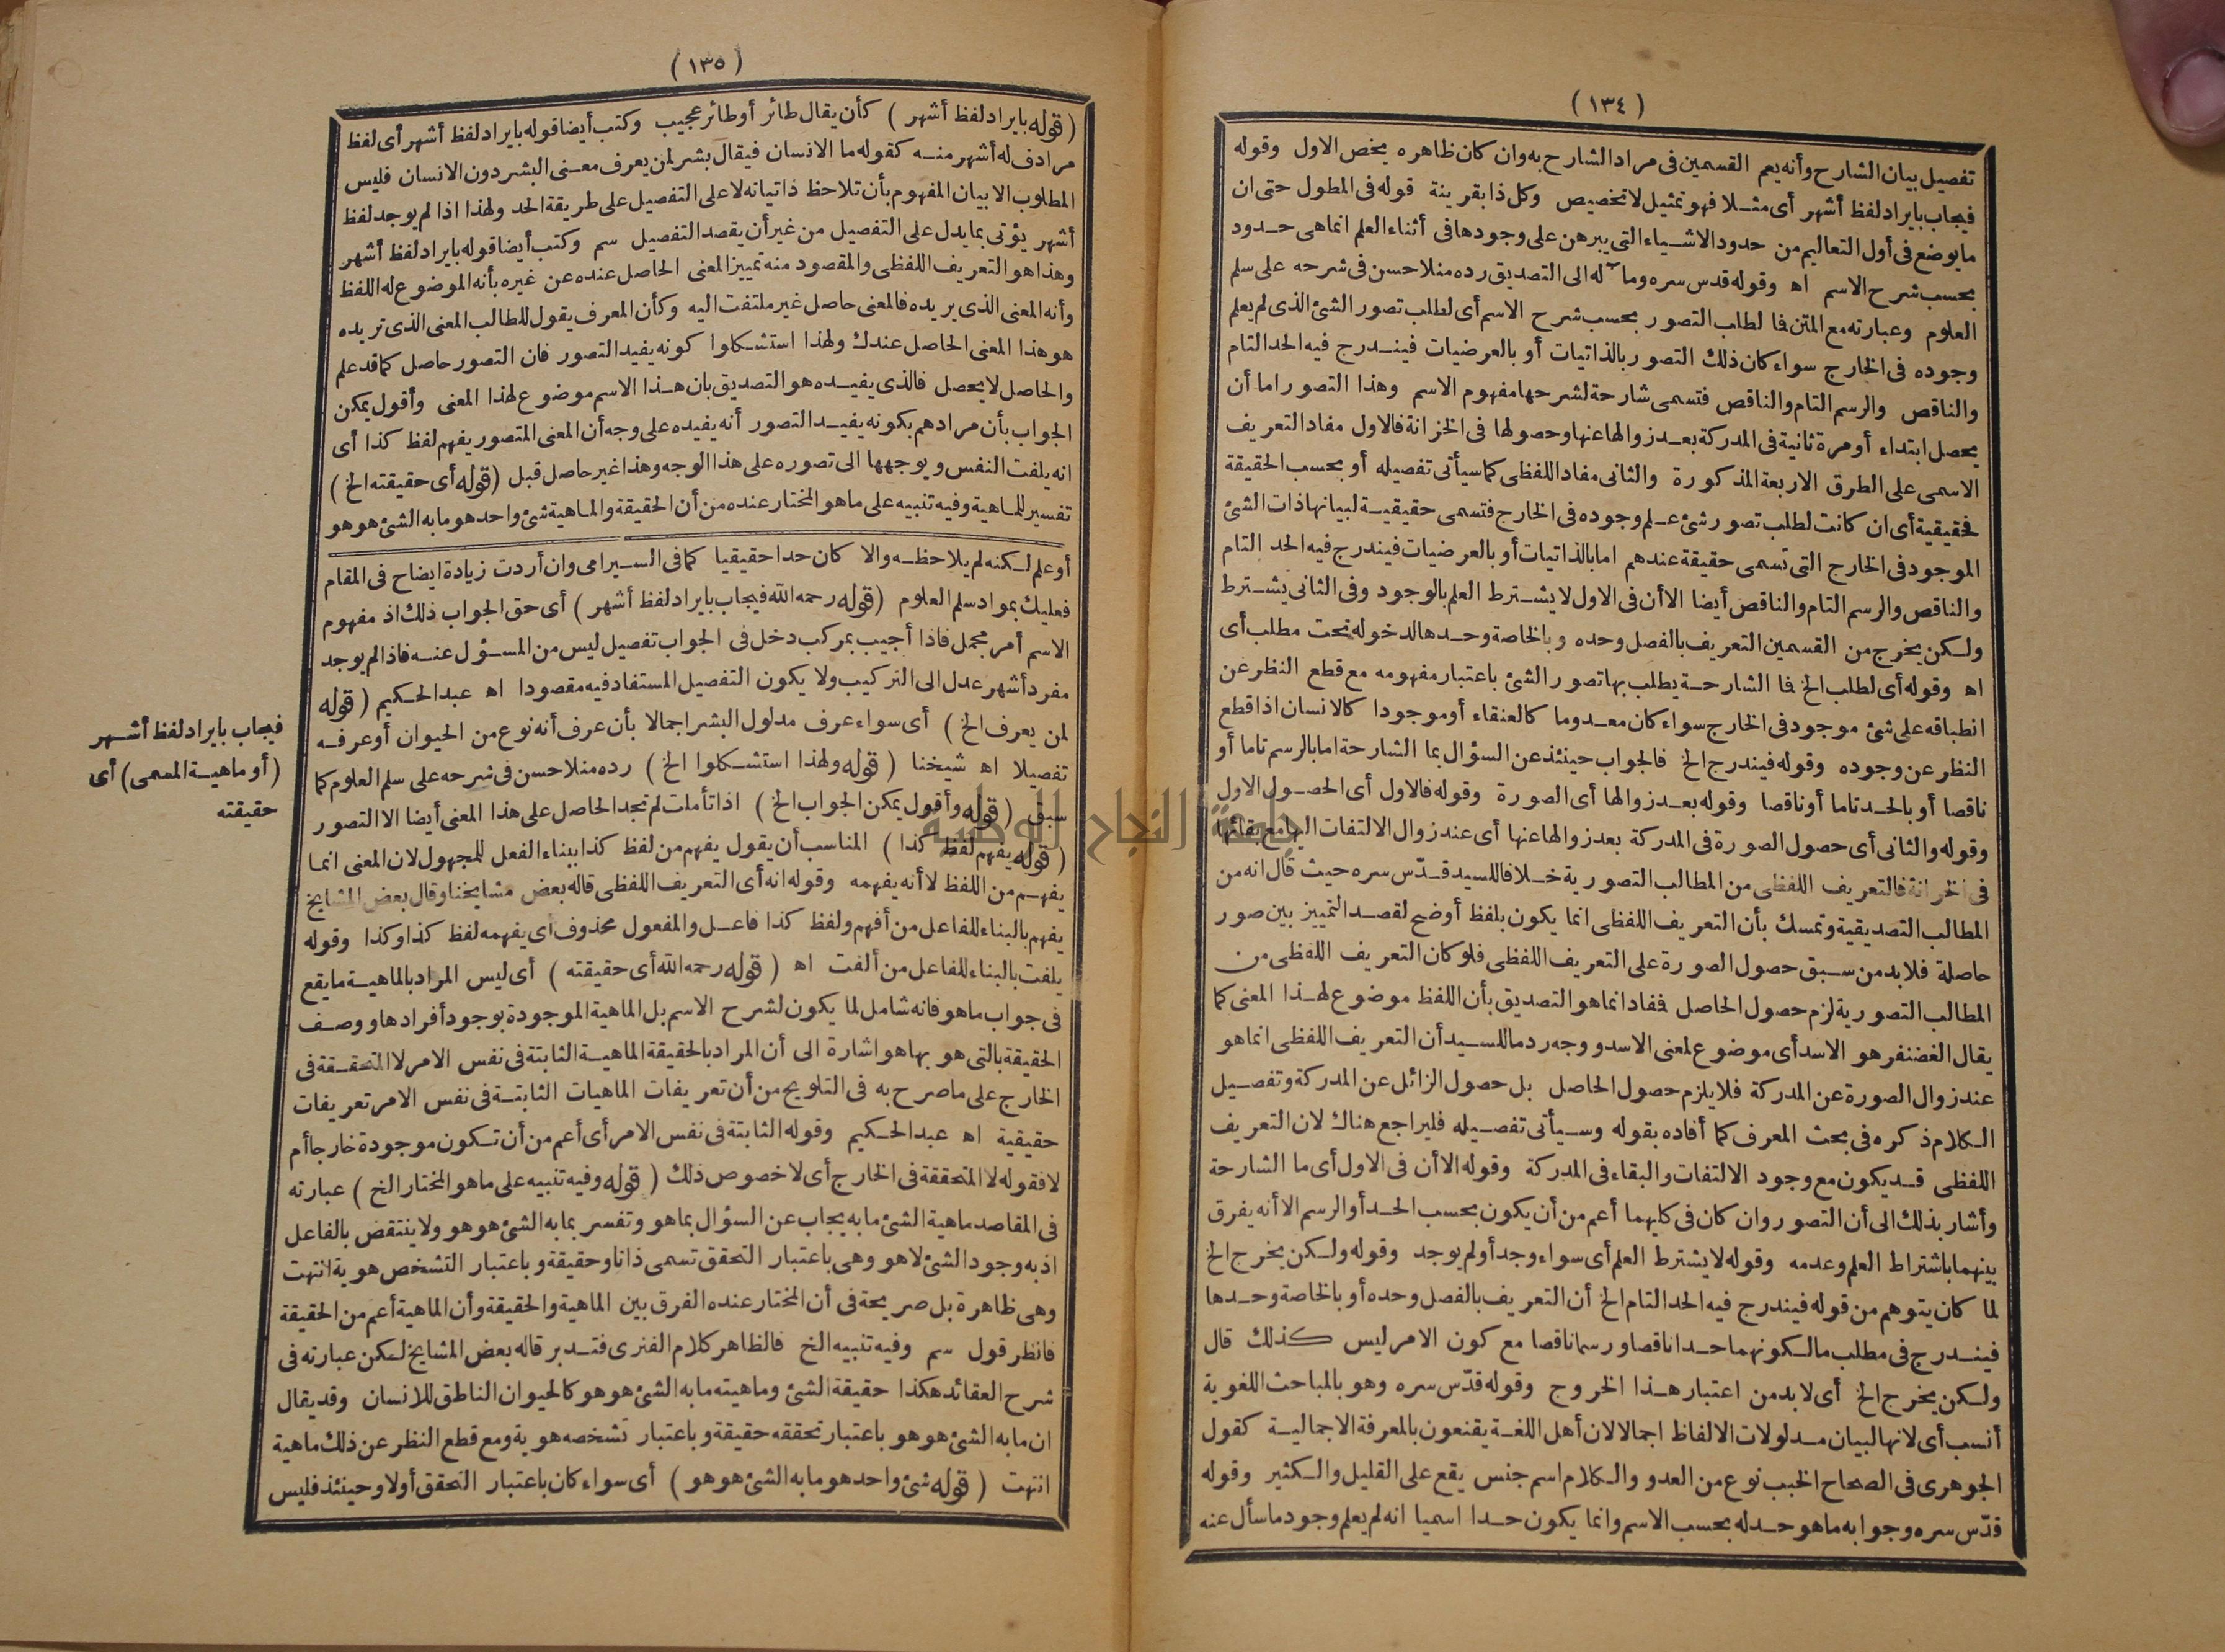 (١٣٤)
تفصيل بيان الشارح وأنه يعم القسمين فى مراد الشارح به وان كان ظاهره يخص الاول وقوله
فيجاب بايراد لفظ أشهر أى مثلا فهو تمثيل لا تخصيص وكل ذا بقرينة قوله فى المطول حتى ان
ما يوضع فى أول التعاليم من حدود الاشياء التى يبرهن على وجودها فى أثناء العلم انما هى حدود
بحسب شرح الاسم اه وقوله قدس سره ومآله الى التصديق رده منلا حسن فى شرحه على سلم
العلوم وعبارته مع المتن فما لطلب التصور بحسب شرح الاسم أى لطلب تصور الشئ الذى لم يعلم
وجوده فى الخارج سواء كان ذلك التصور بالذاتيات أو بالعرضيات فيندرج فيه الحد التام
والناقص والرسم التام والناقص فتسمى شارحة لشرحها مفهوم الاسم وهذا التصور اما أن
يحصل ابتداء أو مرة ثانية فى المدركة بعد زوالها عنها وحصولها فى الخزانة فالاول مفاد التعريف
الاسمى على الطرق الاربعة المذكورة والثانى مفاد اللفظى كما سيأتى تفصيله أو بحسب الحقيقة
فحقيقية أى ان كانت لطلب تصور شئ علم وجوده فى الخارج فتسمى حقيقية لبيانها ذات الشئ
الموجود فى الخارج التى تسمى حقيقة عندهم اما بالذاتيات أو بالعرضيات فيندرج فيه الحد التام
والناقص والرسم التام والناقص أيضا الا أن فى الاول لا يشترط العلم بالوجود وفى الثانى يشترط
ولكن يخرج من القسمين التعريف بالفصل وحده وبالخاصة وحدها لدخوله تحت مطلب أى
اه وقوله أى لطلب الخ فما الشارحة يطلب بها تصور الشئ باعتبار مفهومه مع قطع النظر عن
انطباقه على شئ موجود فى الخارج سواء كان معدوما كالعنقاء أو موجودا كالانسان اذا قطع
النظر عن وجوده وقوله فيندرج الخ فالجواب حينئذ عن السؤال بما الشارحة اما بالرسم تاما أو
ناقصا أو بالحد تاما أو ناقصا وقوله بعد زوالها أى الصورة وقوله فالاول أى الحصول الاول
وقوله والثانى أى حصول الصورة فى المدركة بعد زوالها عنها أى عند زوال الالتفات اليها مع بقائها
فى الخزانة فالتعريف اللفظى من المطالب التصورية خلافا للسيد قدّس سره حيث قال انه من
المطالب التصديقية وتمسك بأن التعريف اللفظى انما يكون بلفظ أوضح لقصد التمييز بين صور
حاصلة فلا بد من سبق حصول الصورة على التعريف اللفظى فلو كان التعريف اللفظى من
المطالب التصورية لزم حصول الحاصل فمفاد انما هو التصديق بأن اللفظ موضوع لهذا المعنى كما
يقال الغضنفر هو الاسد أى موضوع لمعنى الاسد ووجه رد ما للسيد أن التعريف اللفظى انما هو
عند زوال الصورة عن المدركة فلا يلزم حصول الحاصل بل حصول الزائل عن المدركة وتفصيل
الكلام ذكره فى بحث المعرف كما أفاده بقوله وسيأتى تفصيله فليراجع هناك لان التعريف
اللفظى قد يكون مع وجود الالتفات والبقاء فى المدركة وقوله الا أن فى الاول أى ما الشارحة
وأشار بذلك الى أن التصور وان كان فى كليهما أعم من أن يكون بحسب الحد أو الرسم الا أنه يفرق
بينهما باشتراط العلم وعدمه وقوله لا يشترط العلم أى سواء وجد أو لم يوجد وقوله ولكن يخرج الخ
لما كان يتوهم من قوله فيندرج فيه الحد التام الخ أن التعريف بالفصل وحده أو بالخاصة وحدها
فيندرج فى مطلب ما لكونهما حدا ناقصا ورسما ناقصا مع كون الامر ليس كذلك قال
ولكن يخرج الخ أى لابد من اعتبار هذا الخروج وقوله قدّس سره وهو بالمباحث اللغوية
أنسب أى لانها لبيان مدلولات الالفاظ اجمالا لان أهل اللغة يقنعون بالمعرفة الاجمالية كقول
الجوهرى فى الصحاح الخبب نوع من العدو والكلام اسم جنس يقع على القليل والكثير وقوله
قدّس سره وجوابه ما هو حد له بحسب الاسم وانما يكون حدا اسميا انه لم يعلم وجود ما سأل عنه
(١٣٥)
(قوله بايراد لفظ أشهر) كأن يقال طائر أو طائر عجيب وكتب أيضا قوله بايراد لفظ أشهر أى لفظ
مرادف له أشهر منه كقوله ما الانسان فيقال بشر لمن يعرف معنى البشر دون الانسان فليس
المطلوب الا بيان المفهوم بأن تلاحظ ذاتياته لا على التفصيل على طريقة الحد ولهذا اذا لم يوجد لفظ
أشهر يؤتى بما يدل على التفصيل من غير أن يقصد التفصيل سم وكتب أيضا قوله بايراد لفظ أشهر
وهذا هو التعريف اللفظى والمقصود منه تمييز المعنى الحاصل عنده عن غيره بأنه الموضوع له اللفظ
وأنه المعنى الذى يريده فالمعنى حاصل غير ملتفت اليه وكأن المعرف يقول للطالب المعنى الذى تريده
هو هذا المعنى الحاصل عندك ولهذا استشكلوا كونه يفيد التصور فان التصور حاصل كما قد علم
والحاصل لا يحصل فالذى يفيده هو التصديق بان هذا الاسم موضوع لهذا المعنى وأقول يمكن
الجواب بأن مرادهم بكونه يفيد التصور أنه يفيده على وجه أن المعنى المتصور يفهم لفظ كذا أى
انه يلفت النفس ويوجهها الى تصوره على هذا الوجه وهذا غير حاصل قبل (قوله أى حقيقته الخ)
تفسير للماهية وفيه تنبيه على ما هو المختار عنده من أن الحقيقة والماهية شئ واحد هو ما به الشئ هو هو
أو علم لكنه لم يلاحظه والا كان حدا حقيقيا كما فى السيرامى وان أردت زيادة ايضاح فى المقام
فعليك بمواد سلم العلوم (قوله رحمه الله فيجاب بايراد لفظ أشهر) أى حق الجواب ذلك اذ مفهوم
الاسم أمر مجمل فاذا أجيب بمركب دخل فى الجواب تفصيل ليس من المسؤل عنه فاذا لم يوجد
مفرد أشهر عدل الى التركيب ولا يكون التفصيل المستفاد فيه مقصودا اه عبد الحكيم (قوله
لمن يعرف الخ) أى سواء عرف مدلول البشر اجمالا بأن عرف أنه نوع من الحيوان أو عرفه
تفصيلا اه شيخنا (قوله ولهذا استشكلوا الخ) رده منلا حسن فى شرحه على سلم العلوم كما
سبق (قوله وأقول يمكن الجواب الخ) اذا تأملت لم تجد الحاصل على هذا المعنى أيضا الا التصور
(قوله يفهم لفظ كذا) المناسب أن يقول يفهم من لفظ كذا ببناء الفعل للمجهول لان المعنى انما
يفهم من اللفظ لا أنه يفهمه وقوله انه أى التعريف اللفظى قاله بعض مشايخنا وقال بعض المشايخ
يفهم بالبناء للفاعل من أفهم ولفظ كذا فاعل والمفعول محذوف أى يفهمه لفظ كذا وكذا وقوله
يلفت بالبناء للفاعل من ألفت اه (قوله رحمه الله أى حقيقته) أى ليس المراد بالماهية ما يقع
فى جواب ما هو فانه شامل لما يكون لشرح الاسم بل الماهية الموجودة بوجود أفرادها ووصف
الحقيقة بالتى هو بها هو اشارة الى أن المراد بالحقيقة الماهية الثابتة فى نفس الامر لا المتحققة فى
الخارج على ما صرح به فى التلويح من أن تعريفات الماهيات الثابتة فى نفس الامر تعريفات
حقيقية اه عبد الحكيم وقوله الثابتة فى نفس الامر أى أعم من أن تكون موجودة خارجا أم
لا فقوله لا المتحققة فى الخارج أى لا خصوص ذلك (قوله وفيه تنبيه على ما هو المختار الخ) عبارته
فى المقاصد ماهية الشئ ما به يجاب عن السؤال بما هو وتفسر بما به الشئ هو هو ولا ينتقض بالفاعل
اذ به وجود الشئ لا هو وهى باعتبار التحقق تسمى ذاتا وحقيقة وباعتبار التشخص هوية انتهت
وهى ظاهرة بل صريحة فى أن المختار عنده الفرق بين الماهية والحقيقة وأن الماهية أعم من الحقيقة
فانظر قول سم وفيه تنبيه الخ فالظاهر كلام الفنرى فتدبر قاله بعض المشايخ لكن عبارته فى
شرح العقائد هكذا حقيقة الشئ وماهيته ما به الشئ هو هو كالحيوان الناطق للانسان وقد يقال
ان ما به الشئ هو هو باعتبار تحققه حقيقة وباعتبار تشخصه هوية ومع قطع النظر عن ذلك ماهية
انتهت (قوله شئ واحد هو ما به الشئ هو هو) أى سواء كان باعتبار التحقق أولا وحينئذ فليس
فيجاب بايراد لفظ أشهر
(أو ماهية المسمى) أى
حقيقته
جامعة النجاح الوطنية